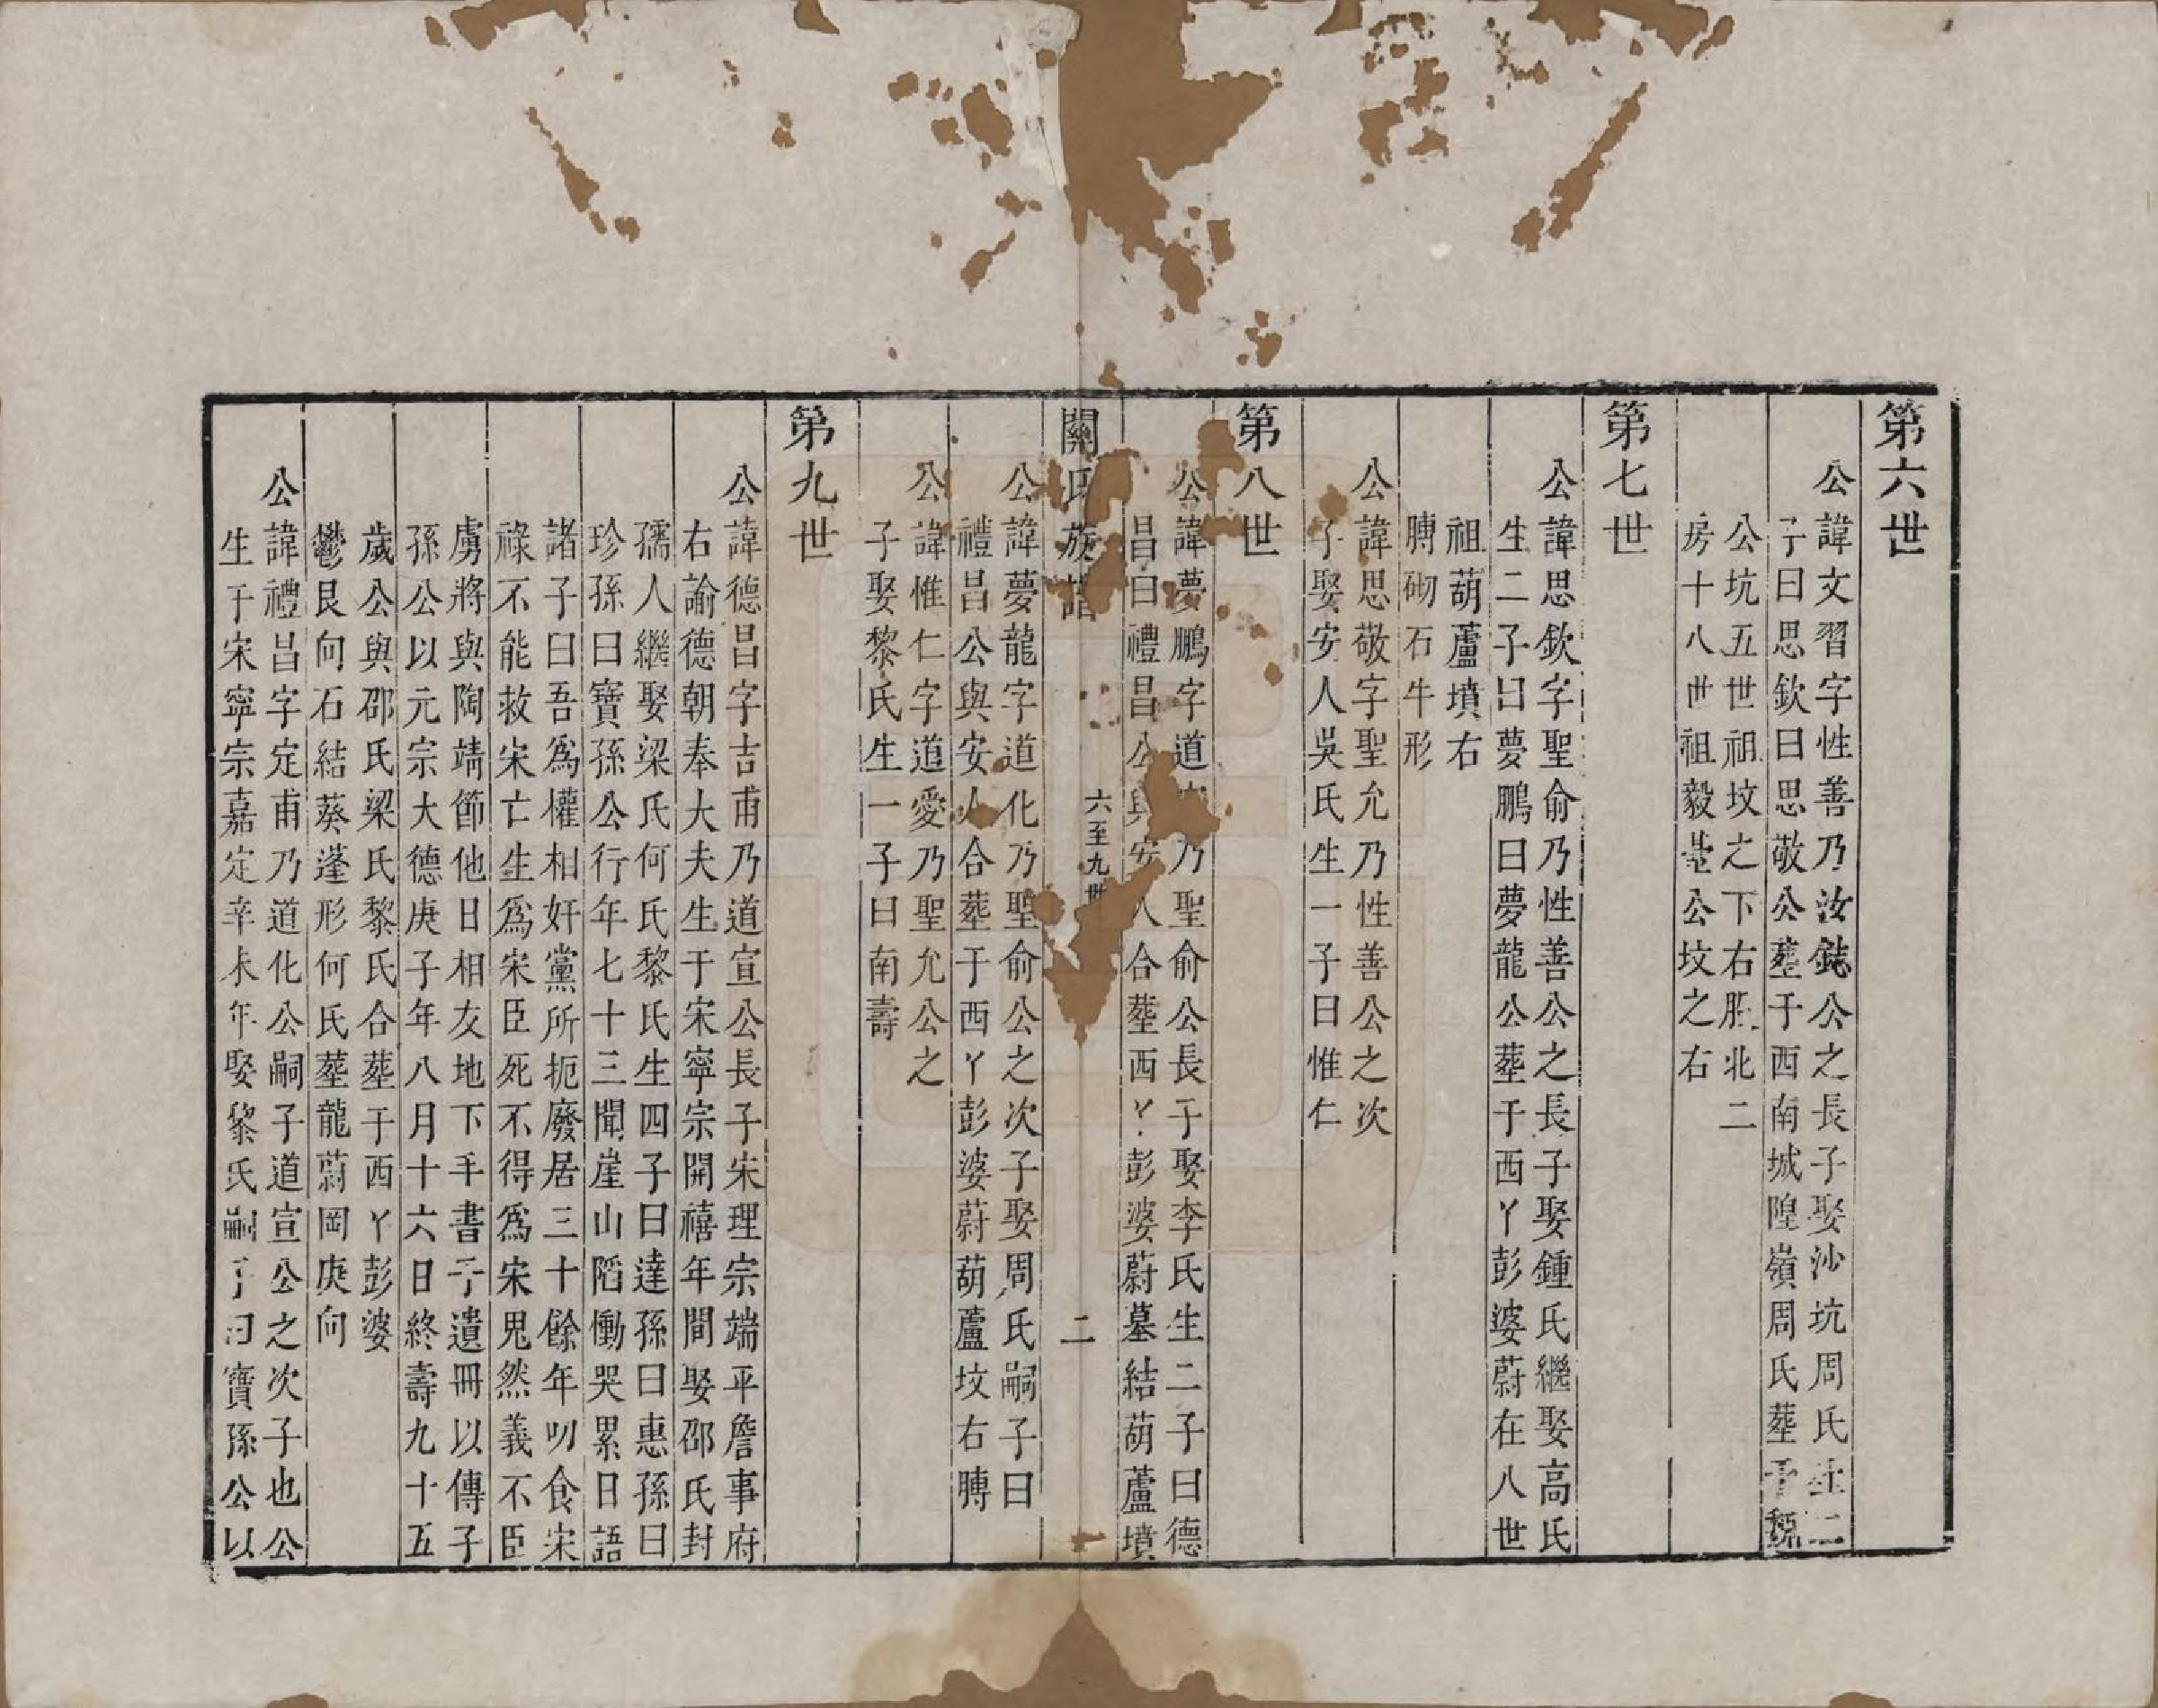 第六世
公諱文習字性善乃汝鋕公之長子娶沙坑周氏生二
子曰思欽曰思敬公塟于西南城隍嶺周氏塟于魏
公坑五世祖坟之下右胜北二
房十八世祖毅菴公坟之右
第七世
公諱思欽字聖俞乃性善公之長子娶鍾氏繼娶高氏
生二子曰夢鵬曰夢龍公塟于西丫彭婆蔚在八世
祖葫蘆墳右
膊砌石牛形
公諱思敬字聖允乃性善公之次
子娶安人吳氏生一子曰惟仁
第八世
公諱夢鵬字道乃聖俞公長子娶李氏生二子曰德
昌曰禮昌公與安人合塟西丫彭婆蔚墓結葫蘆墳
關氏族譜
六至九世
二
公諱夢龍字道化乃聖俞公之次子娶周氏嗣子曰
禮昌公與安人合塟于西丫彭婆蔚葫蘆坟右膊
公諱惟仁字道愛乃聖允公之
子娶黎氏生一子曰南壽
第九世
公諱德昌字吉甫乃道宣公長子宋理宗端平詹事府
右諭德朝奉大夫生于宋寧宗開禧年間娶邵氏封
孺人繼娶梁氏何氏黎氏生四子曰達孫曰惠孫曰
珍孫曰寶孫公行年七十三聞崖山陷慟哭累日語
諸子曰吾為權相奸黨所扼廢居三十餘年叨食宋
祿不能救宋亡生為宋臣死不得為宋鬼然義不臣
虜將與陶靖節他日相友地下手書于遺冊以傳子
孫公以元宗大德庚子年八月十六日終壽九十五
歲公與邵氏梁氏黎氏合塟于西丫彭婆
鬱艮向石結葵蓬形何氏塟龍蔚岡庚向
公諱禮昌字定甫乃道化公嗣子道宣公之次子也公
生于宋寧宗嘉定辛未年娶黎氏嗣子曰寶孫公以